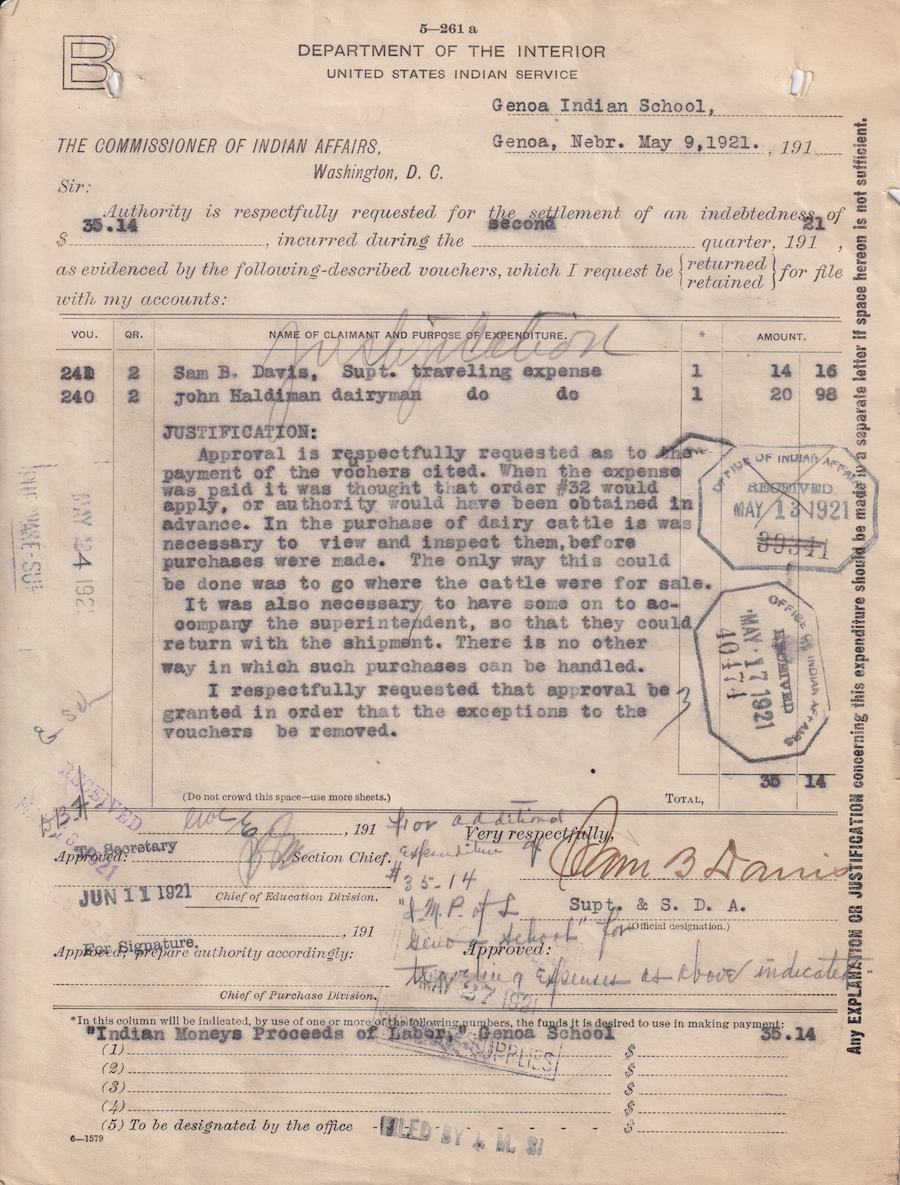 5—261 a
B
DEPARTMENT OF THE INTERIOR
UNITED STATES INDIAN SERVICE
Genoa Indian School,
Genoa, Nebr. May 9,1921. , 191
THE COMMISSIONER OF INDIAN AFFAIRS,
Washington, D. C.
Sir:
Authority is respectfully requested for the settlement of an indebtedness of
$ 35.14 , incurred during the second quarter, 191 21 ,
as evidenced by the following-described vouchers, which I request be {returned retained} for file
with my accounts:
Justification
VOU. QR. NAME OF CLAIMANT AND PURPOSE OF EXPENDITURE. * AMOUNT.
241 2 Sam B. Davis, Supt. traveling expense 1 14 16
240 2 John Haldiman dairyman do do 1 20 98
JUSTIFICATION:
Approval is respectfully requested as to the
payment of the vouchers cited. When the expense
was paid it was thought that order #32 would
apply, or authority would have been obtained in
advance. In the purchase of dairy cattle is was
necessary to view and inspect them,before
purchases were made. The only way this could
be done was to go where the cattle were for sale.
It was also necessary to have some on to ac-
company the superintendent, so that they could
return with the shipment. There is no other
way in which such purchases can be handled.
I respectfully requested that approval be
granted in order that the exceptions to the
vouchers be removed.
OFFICE OF INDIAN AFFAIRS
RECEIVED
MAY 13 1921
39341
OFFICE OF INDIAN AFFAIRS
RECEIVED
MAY 17 1921
40474
MAY 24 1921
35 14
(Do not crowd this space—use more sheets.) TOTAL,
RECEIVED
, 191
For additional
Very respectfully,
To Secretary
Approved: , Section Chief.
Expenditure of
$35-14
Sam B Davis
JUN 11 1921 Chief of Education Division.
"I.M.P. of L
Supt. & S. D. A.
(Official designation.)
, 191
Genoa School" for
For Signature.
Approved; prepare authority accordingly: Approved:
traveling Expenses as above indicated
Chief of Purchase Division.
MAY 27 1921
SUPPLIES
*In this column will be indicated, by use of one or more of the following numbers, the funds it is desired to use in making payment:
"Indian Moneys Proceeds of Labor," Genoa School 35.14
(1) $
(2) $
(3) $
(4) $
(5) To be designated by the office - - - - - - $
6—1579
FILED BY J. M. S.
Any EXPLANATION OR JUSTIFICATION concerning this expenditure should be made in a separate letter if space hereon is not sufficient.